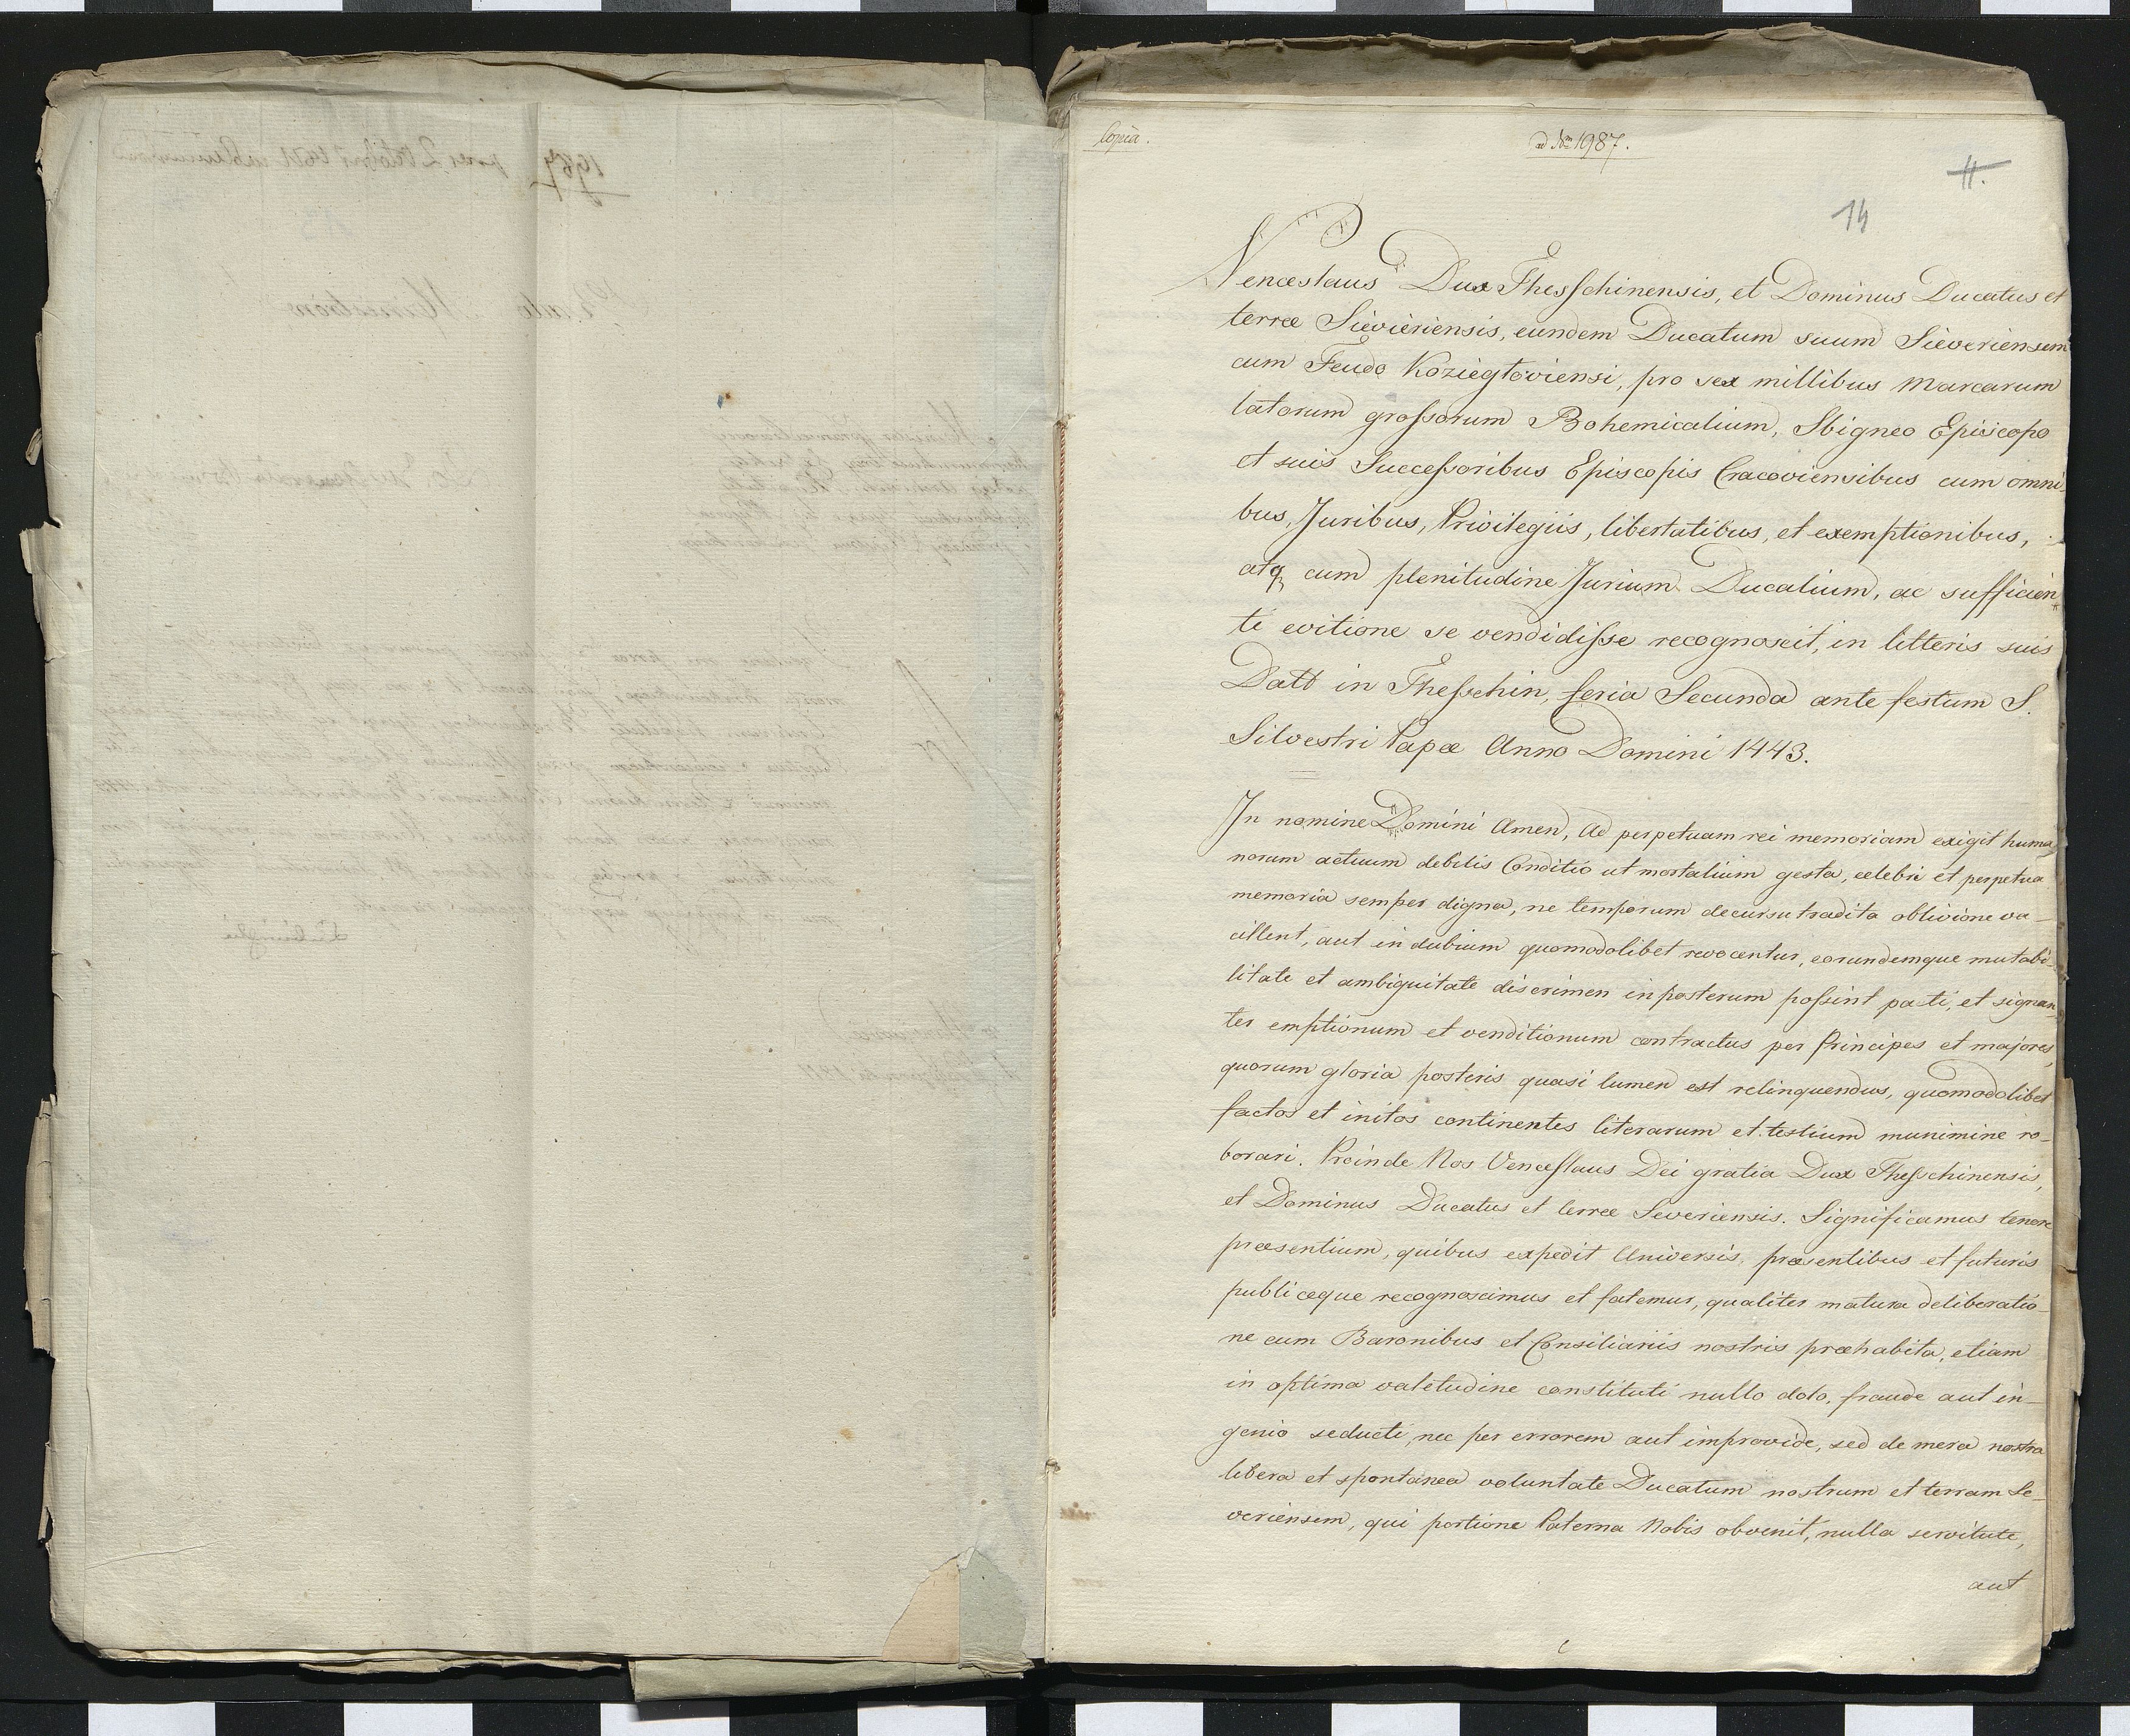 Copia.
ad Nm 1987.
11.
14
Venceslaus Dux Thesschinensis, et Dominus Ducatus et
terræ Sieviériensis, eundem Ducatum suum Sieveriensem
cum Feudo Koziegłoviensi, pro sex millibus Marcarum
latorum grossorum Bohemicalium, Sbigneo Episcopo
et suis Successoribus Episcopis Cracoviensibus cum omni-
bus, Juribus, Privilegiis, libertatibus, et exemptionibus,
atq cum plenitudine Jurium Ducalium, ac sufficien-
ti evitione se vendidisse recognoscit, in litteris suis
Datt in Thesschin, feria Secunda ante festum S.
Silvestri Papæ Anno Domini 1443.
In nomine Domini Amen, Ad perpetuam rei memoriam exigit huma-
norum actuum debilis Conditio ut mortalium gesta, celebri et perpetua
memoria semper digna, ne temporum decursu tradita oblivione va-
cillent, aut in dubium quomodolibet revocentur, eorundemque mutabi-
litate et ambiguitate discrimen in posterum possint pati, et signan-
ter emptionum et venditionum contractus per Principes et majores,
quorum gloria posteris quasi lumen est relinquendus, quomodolibet
factos et initos continentes literarum et testium munimine ro-
borari. Proinde Nos Venceslaus Dei gratia Dux Thesschinensis,
et Dominus Ducatus et terræ Severiensis. Significamus tenore
præsentium, quibus expedit Universis, præsentibus et futuris
publiceque recognoscimus et fatemur, qualiter matura deliberatio-
ne cum Baronibus et Consiliariis nostris præhabita, etiam
in optima valetudine constituti nullo dolo, fraude aut in-
genio seducti, nec per errorem aut improvide, sed de mera nostra
libera et spontanea voluntate Ducatum nostrum et terram Se-
veriensem, qui portione Paterna Nobis obvenit, nulla servitute,
aut